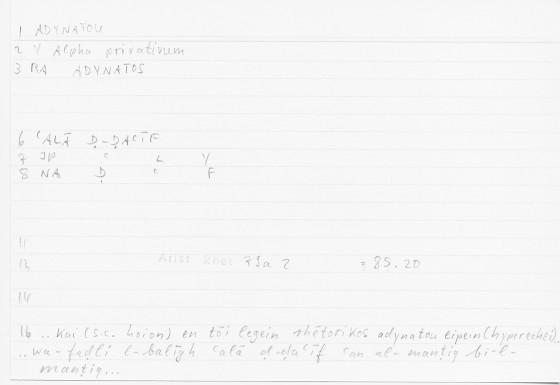 1 ADYNATOU
2 Y Alpha privativum
3 RA ADYNATOS
6 ʿALĀ Ḍ-ḌAʿĪF
7 JP ʿ L Y
8 NA Ḍ ʿ F
11
13 Arist Rhet 71a 2 = 85.20
14
16 .. kai (s.c. hoion) en tōi legein rhētorikos adynatou eipein (hyperechei).
.. wa-faḍli l-balīgh ʿalā ḍ-ḍaʿīf ʿan al-manṭiq bi-l-
manṭiq...